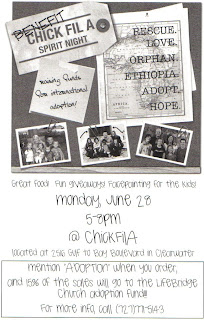 BENEFIT
CHICK FIL A
SPIRIT NIGHT
raising funds
for international
adoption!
RESCUE.
LOVE.
ORPHAN.
ETHIOPIA.
ADOPT.
HOPE.
Great Food! Fun giveaways! Facepainting for the kids!
monday, June 28
5-8pm
@ ChickFilA
located at 2516 Gulf to Bay Boulevard in Clearwater
mention "ADOPTION" when you order,
and 15% of the sales will go to the LifeBridge
Church adoption fund!!!
For more info, call (727)771-5143